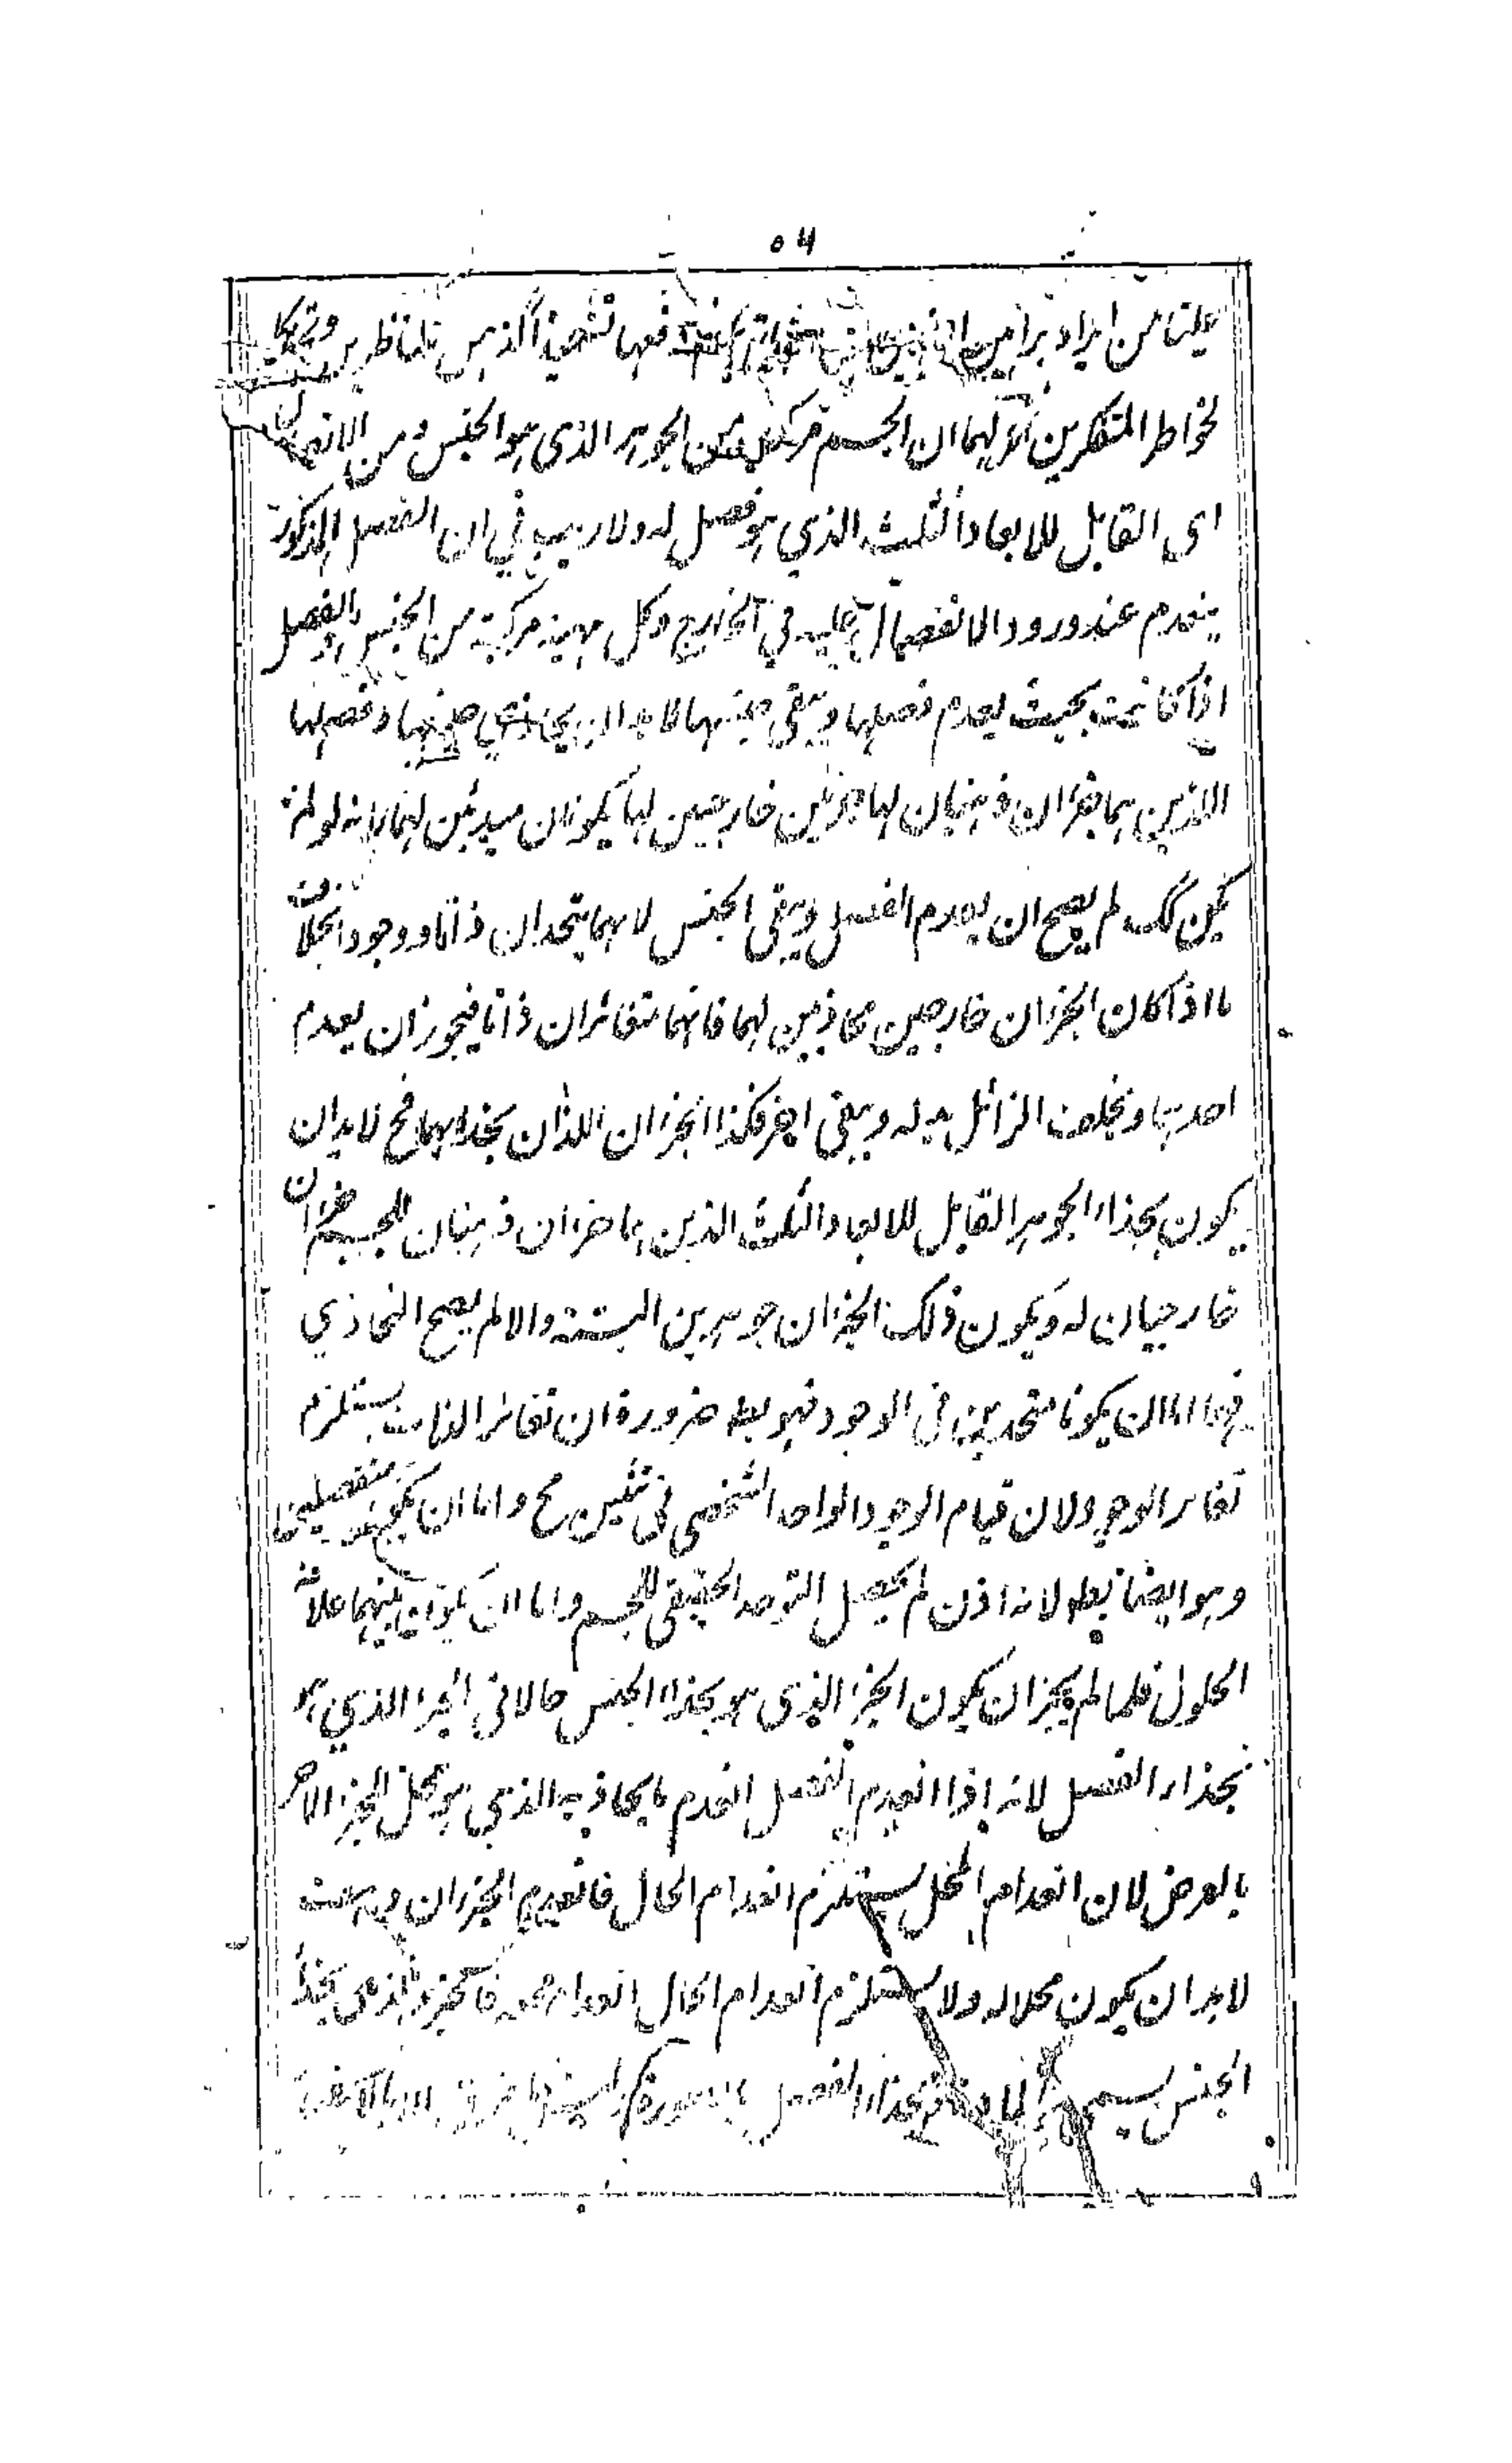 ٥٦
علينا من ايراد براهين فعها تشحيذا لذهن للناظرين
لخواطر المتفكرين اولهما ان الجسم مركب من الجوهر الذى هو الجنس ومن الاتصال
اى القابل للابعاد الثلث الذي هو فصل له ولا ريب في ان الفصل المذكور
ينعدم عند ورود الانفصال عليه في الخارج وكل مهية مركبة من الجنس والفصل
اذا كانت بحيث يعدم فصلها ويبقى جنسها فلا بد ان يحاذي جنسها وفصلها
اللذين هما جزءان ذهنيان لها جزئين خارجين لها يكونان مبدئين لهما لانه لو لم
يكن كك لم يصح ان يعدم الفصل ويبقى الجنس لانهما يتحدان ذاتا ووجودا بخلاف
ما اذا كان الجزءان خارجين محاذيين لهما فانهما متغائران ذاتا فيجوز ان يعدم
احدهما ويخلف الزائل بدله ويبقى اخر فكذا الجزءان اللذان بحذائهما فح لا بد ان
يكون بحذاء الجوهر القابل للابعاد الثلث الذين هما جزءان ذهنيان للجسم جزءان
خارجيان له ويكون ذلك الجزءان جوهرين البتة والا لم يصح التحاذي
فهما اما ان يكونا متحدين فى الوجود فهو بط ضرورة ان تغائر الذات يستلزم
تغائر الوجود ولان قيام الوجود الواحد الشخصى فى شيئين مح واما ان يكونا منفصلين
وهو ايضا بط لانه اذن لم يحصل التوحد الحقيقى للجسم واما ان يكون بينهما علاقة
الحلول فلما لم يجز ان يكون الجزء الذى هو بحذاء الجنس حالا فى الجزء الذي هو
بحذاء الفصل لانه اذا انعدم الفصل انعدم ما يحاذيه الذي هو محل للجزء الاخر
بالعرض لان انعدام المحل يستلزم انعدام الحال فانعدم الجزءان
لا بد ان يكون محلا له ولا يستلزم انعدام الحال انعدام محله فالجزء الذى بحذاء
الجنس يسمى بحذاء الفصل